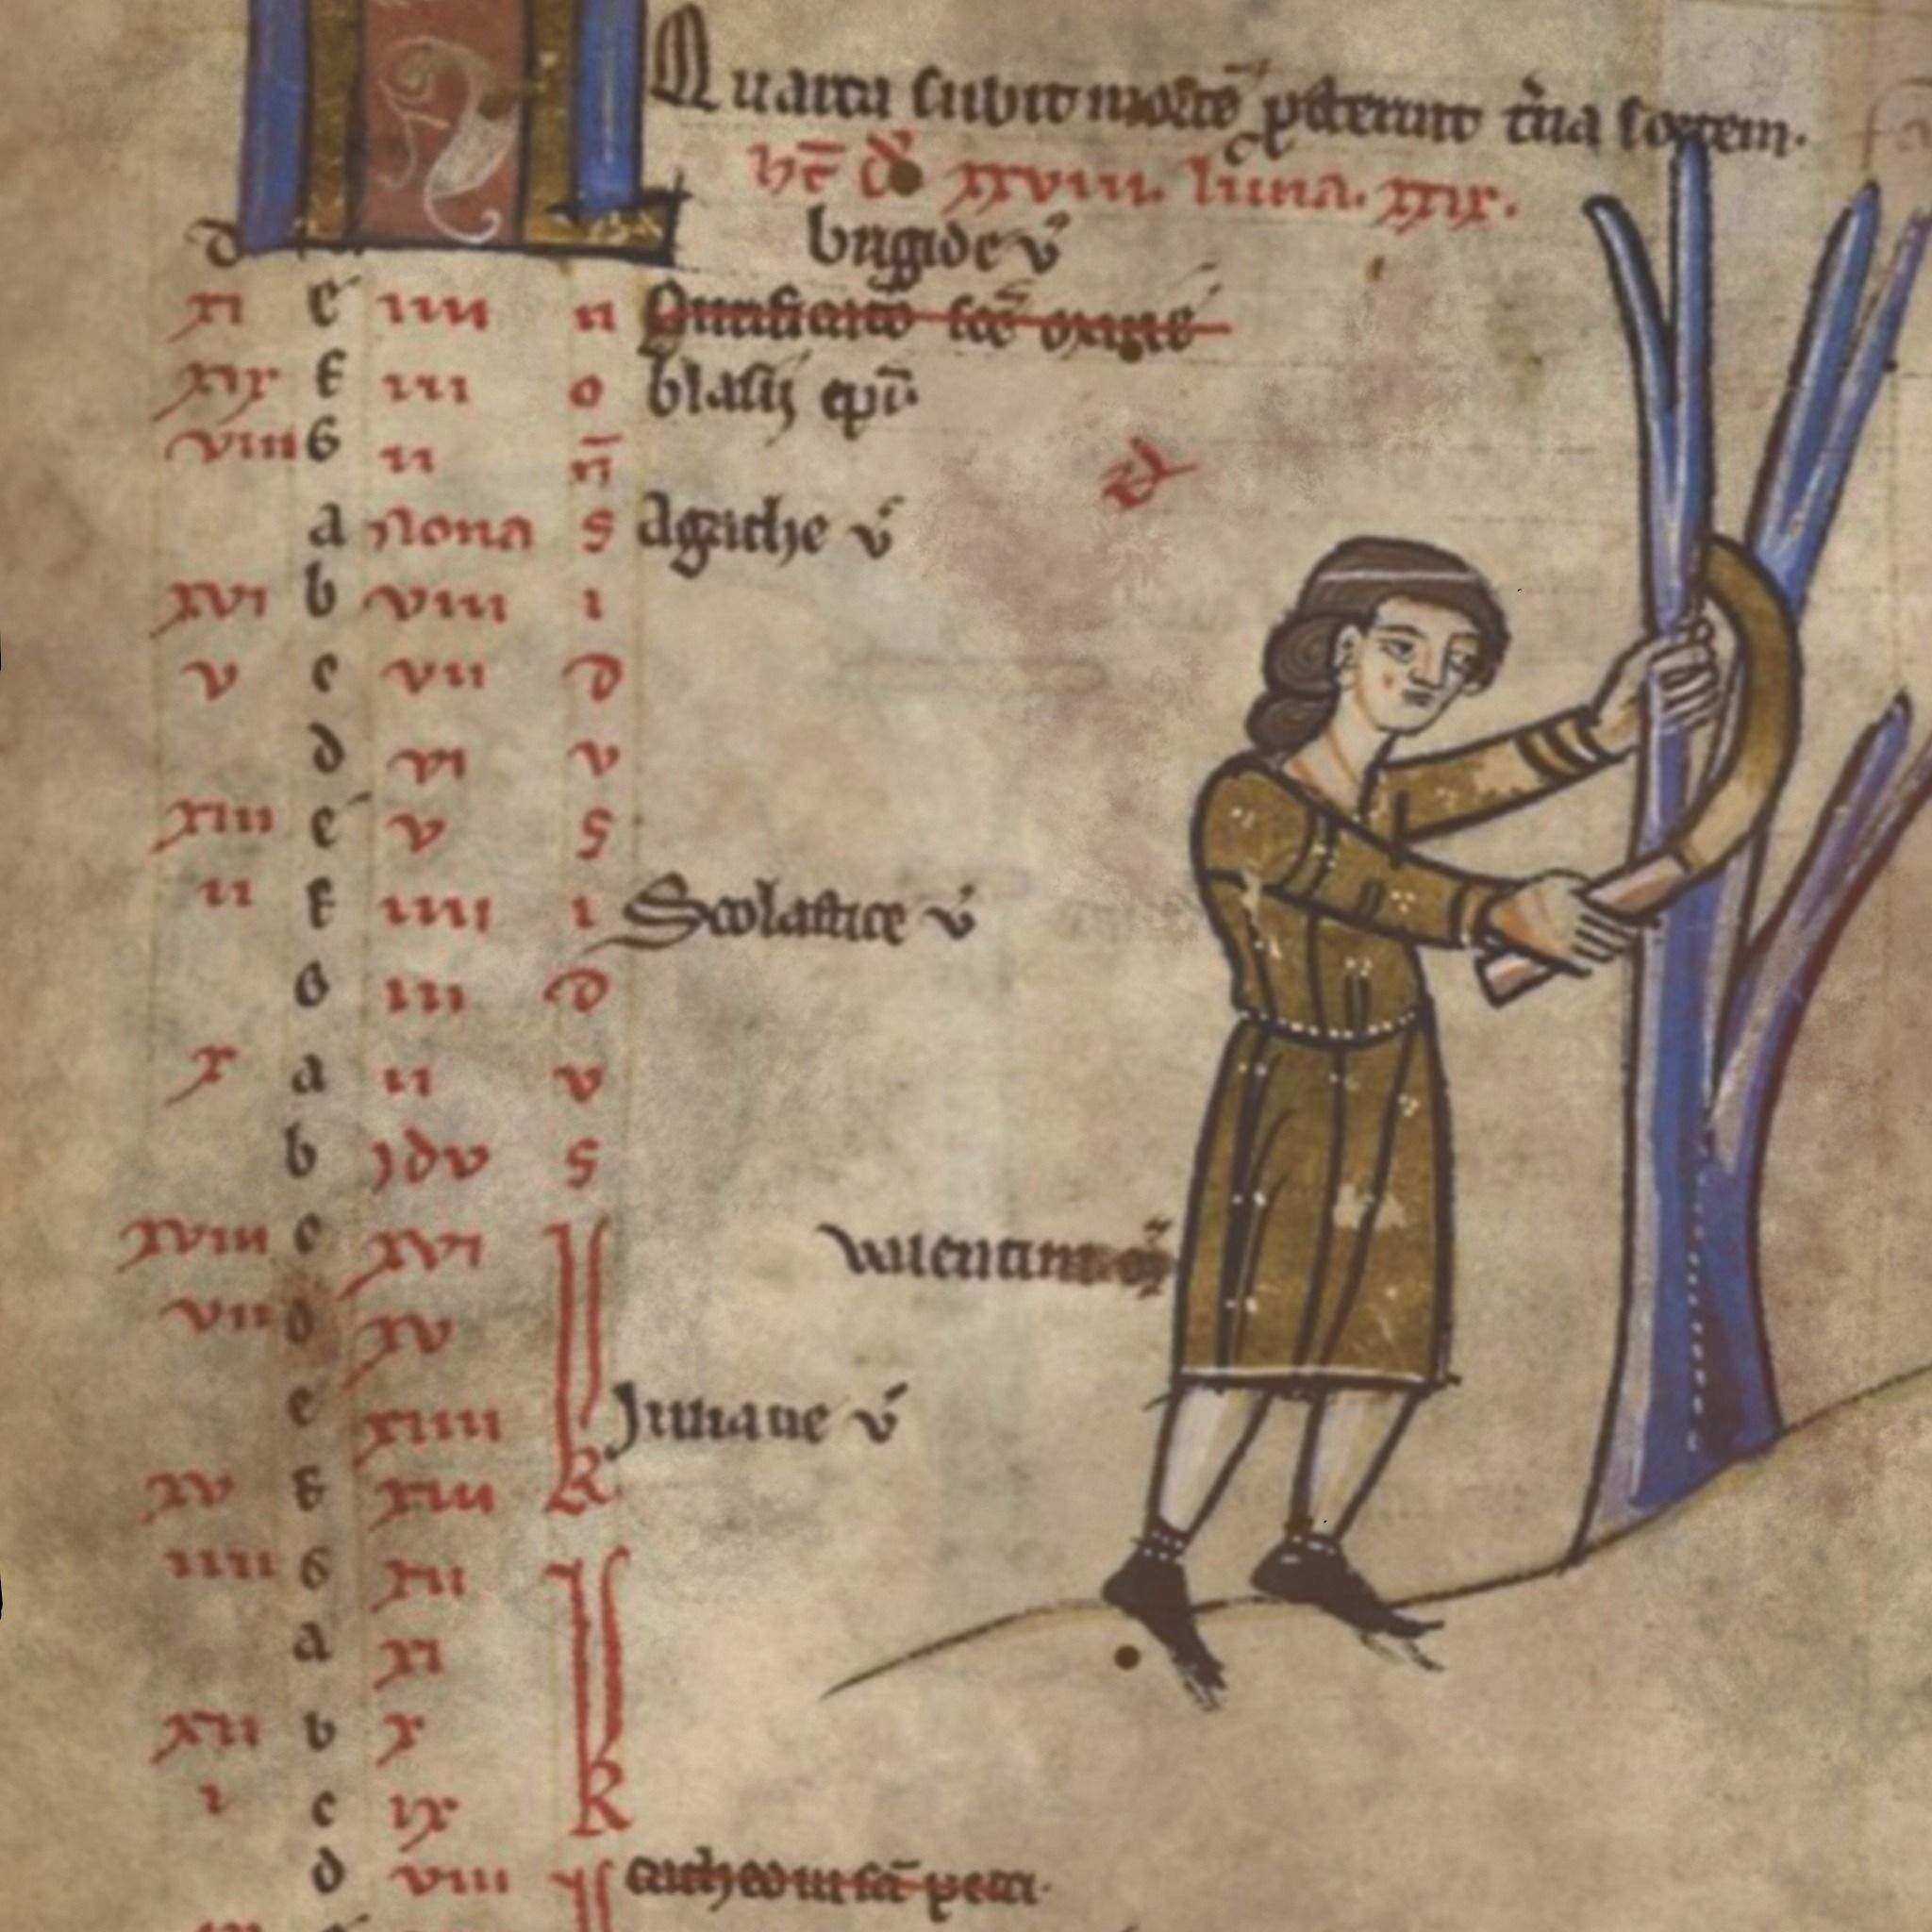 Quarta subit mortē p̄sternit t̄cia fortem.
h̄t d' xxviii. luna. xxix.
d brigide v̄
xi e iiii n Purificatio scē marie
xix f iii o blasij ep̄i
viii G ii n̄
a Nona S Agathe v̄
xvi b viii i
v c vii D
d vi v
xiii e v S
ii f iiii i Scolastice v̄
G iii D
x a ii v
b idv S
xviii c xvi valentini
vii d xv
e xiiii K Juliane v̄
xv f xiii
iiii G xii
a xi
xii b x K
i c ix
d viii cathedra sc̄i petri.